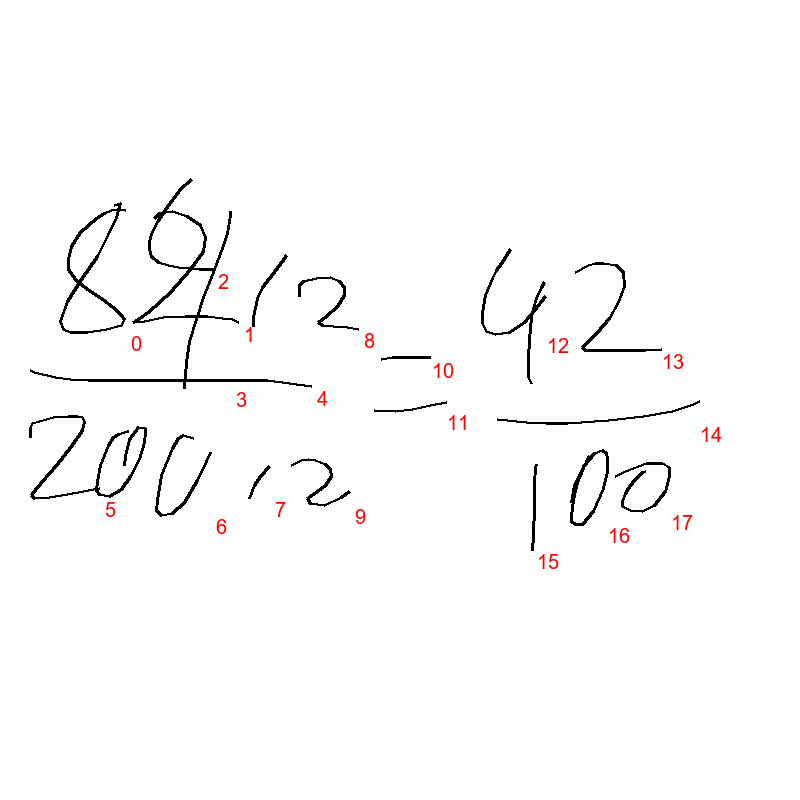 84/2
200/2
=
42
100
0
1
2
3
4
5
6
7
8
9
10
11
12
13
14
15
16
17